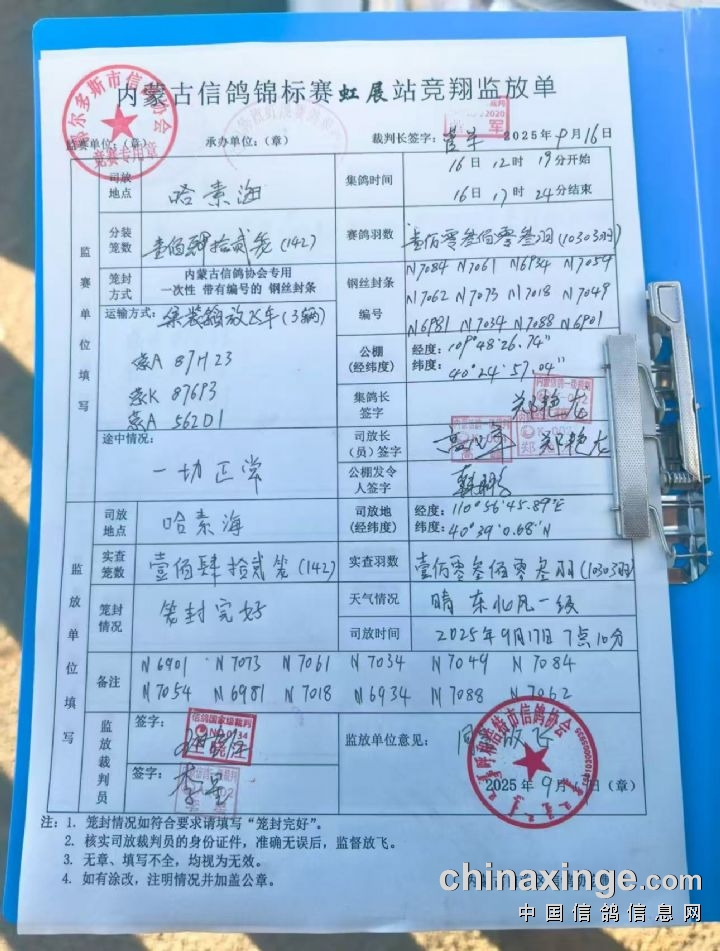 内蒙古信鸽锦标赛虹展站竞翔监放单
监赛单位：（章） 承办单位：（章） 裁判长签字： 2025年9月16日
鄂尔多斯市信鸽协会
竞赛专用章
监赛单位填写
司放地点 哈素海 集鸽时间 16日12时19分开始
16日17时24分结束
分装笼数 壹佰肆拾贰笼(142) 赛鸽羽数 壹佰零叁佰零叁羽(10303羽)
笼封方式 内蒙古信鸽协会专用
一次性 带有编号的 钢丝封条
钢丝封条编号 N7084 N7061 N6934 N7054
N7062 N7073 N7018 N7049
N6981 N7034 N7088 N6901
运输方式：集装箱放飞车(3辆)
蒙A 87H23
蒙K 87693
蒙A 562D1
公棚（经纬度） 经度：109°48'26.74"
纬度：40°24'57.04"
集鸽长签字 郑艳龙
途中情况：
一切正常
司放长（员）签字 郑艳龙
公棚发令人签字
监放单位填写
司放地点 哈素海 司放地（经纬度） 经度：110°56'45.89"E
纬度：40°39'0.68"N
实查笼数 壹佰肆拾贰笼(142) 实查羽数 壹佰零叁佰零叁羽(10303羽)
笼封情况 笼封完好 天气情况 晴 东北风一级
司放时间 2025年9月17日7点10分
备注 N6901 N7073 N7061 N7034 N7049 N7084
N7054 N6981 N7018 N6934 N7088 N7062
监放裁判员 签字：
信鸽国家级裁判
签字： 李星
监放单位意见： 同意放飞
呼和浩特市信鸽协会
2025年9月17日（章）
注：1. 笼封情况如符合要求请填写“笼封完好”。
2. 核实司放裁判员的身份证件，准确无误后，监督放飞。
3. 无章、填写不全，均视为无效。
4. 如有涂改，注明情况并加盖公章。
chinaxinge.com
中国信鸽信息网